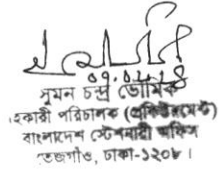 সুমন চন্দ্র ভৌমিক
হকারী পরিচালক (প্রকিউরমেন্ট)
বাংলাদেশ স্টেশনারী অফিস
তেজগাঁও, ঢাকা-১২০৮।